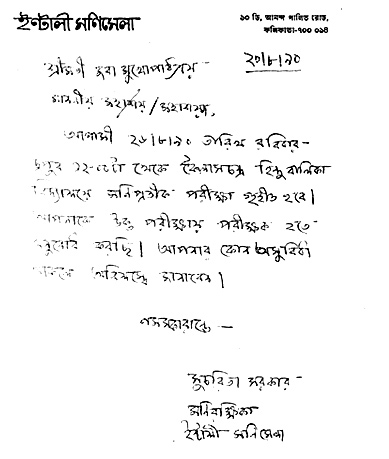 ইন্টালী মণিমেলা
১০ ডি, আনন্দ পালিত রোড,
কলিকাতা-৭০০ ০১৪
২০।৮।৯০
শ্রীমতী জবা মুখোপাধ্যায়
মাননীয় মহাশয় / মহাশয়া,
আগামী ২৬।৮।৯০ তারিখ রবিবার
দুপুর ১২-০০টা থেকে হিন্দু বালিকা
বিদ্যালয়ে মণিপ্রতীক পরীক্ষা গৃহীত হবে।
আপনাকে উক্ত পরীক্ষায় পরীক্ষক হতে
অনুরোধ করছি। আপনার কোন অসুবিধা
থাকলে অবিলম্বে জানাবেন।
নমস্কারান্তে —
সুচরিতা সরকার
মণিরক্ষিকা
ইন্টালী মণিমেলা